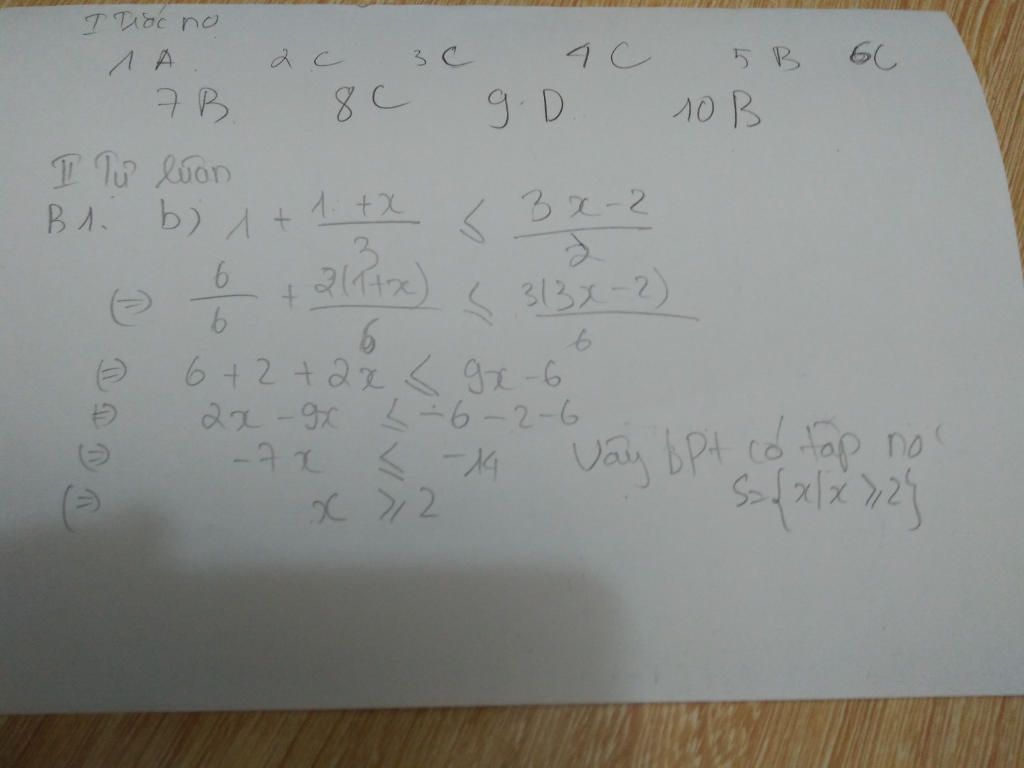 1 A 2 C 3 C 4 C 5 B 6C
7 B 8 C 9. D 10 B
II Tự luận
B1. b) 1 + (1 + x)/3 ≤ (3x - 2)/2
(=) 6/6 + 2(1+x)/6 ≤ 3(3x-2)/6
(=) 6 + 2 + 2x ≤ 9x - 6
(=) 2x - 9x ≤ -6 - 2 - 6
(=) -7x ≤ -14 Vậy bpt có tập no
(=) x ≥ 2 S={x|x ≥ 2}